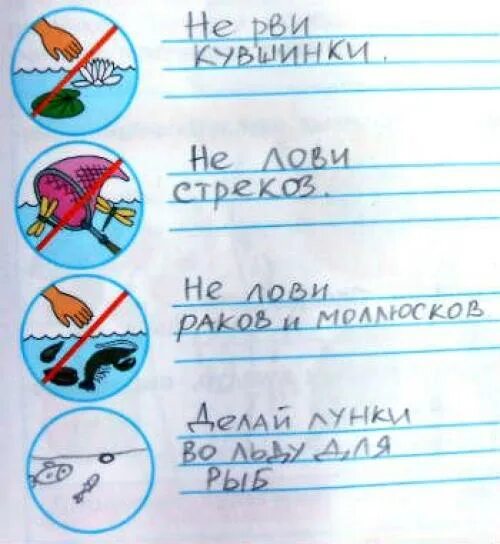 Не рви
кувшинки.
Не лови
стрекоз.
Не лови
раков и моллюсков
Делай лунки
во льду для
рыб